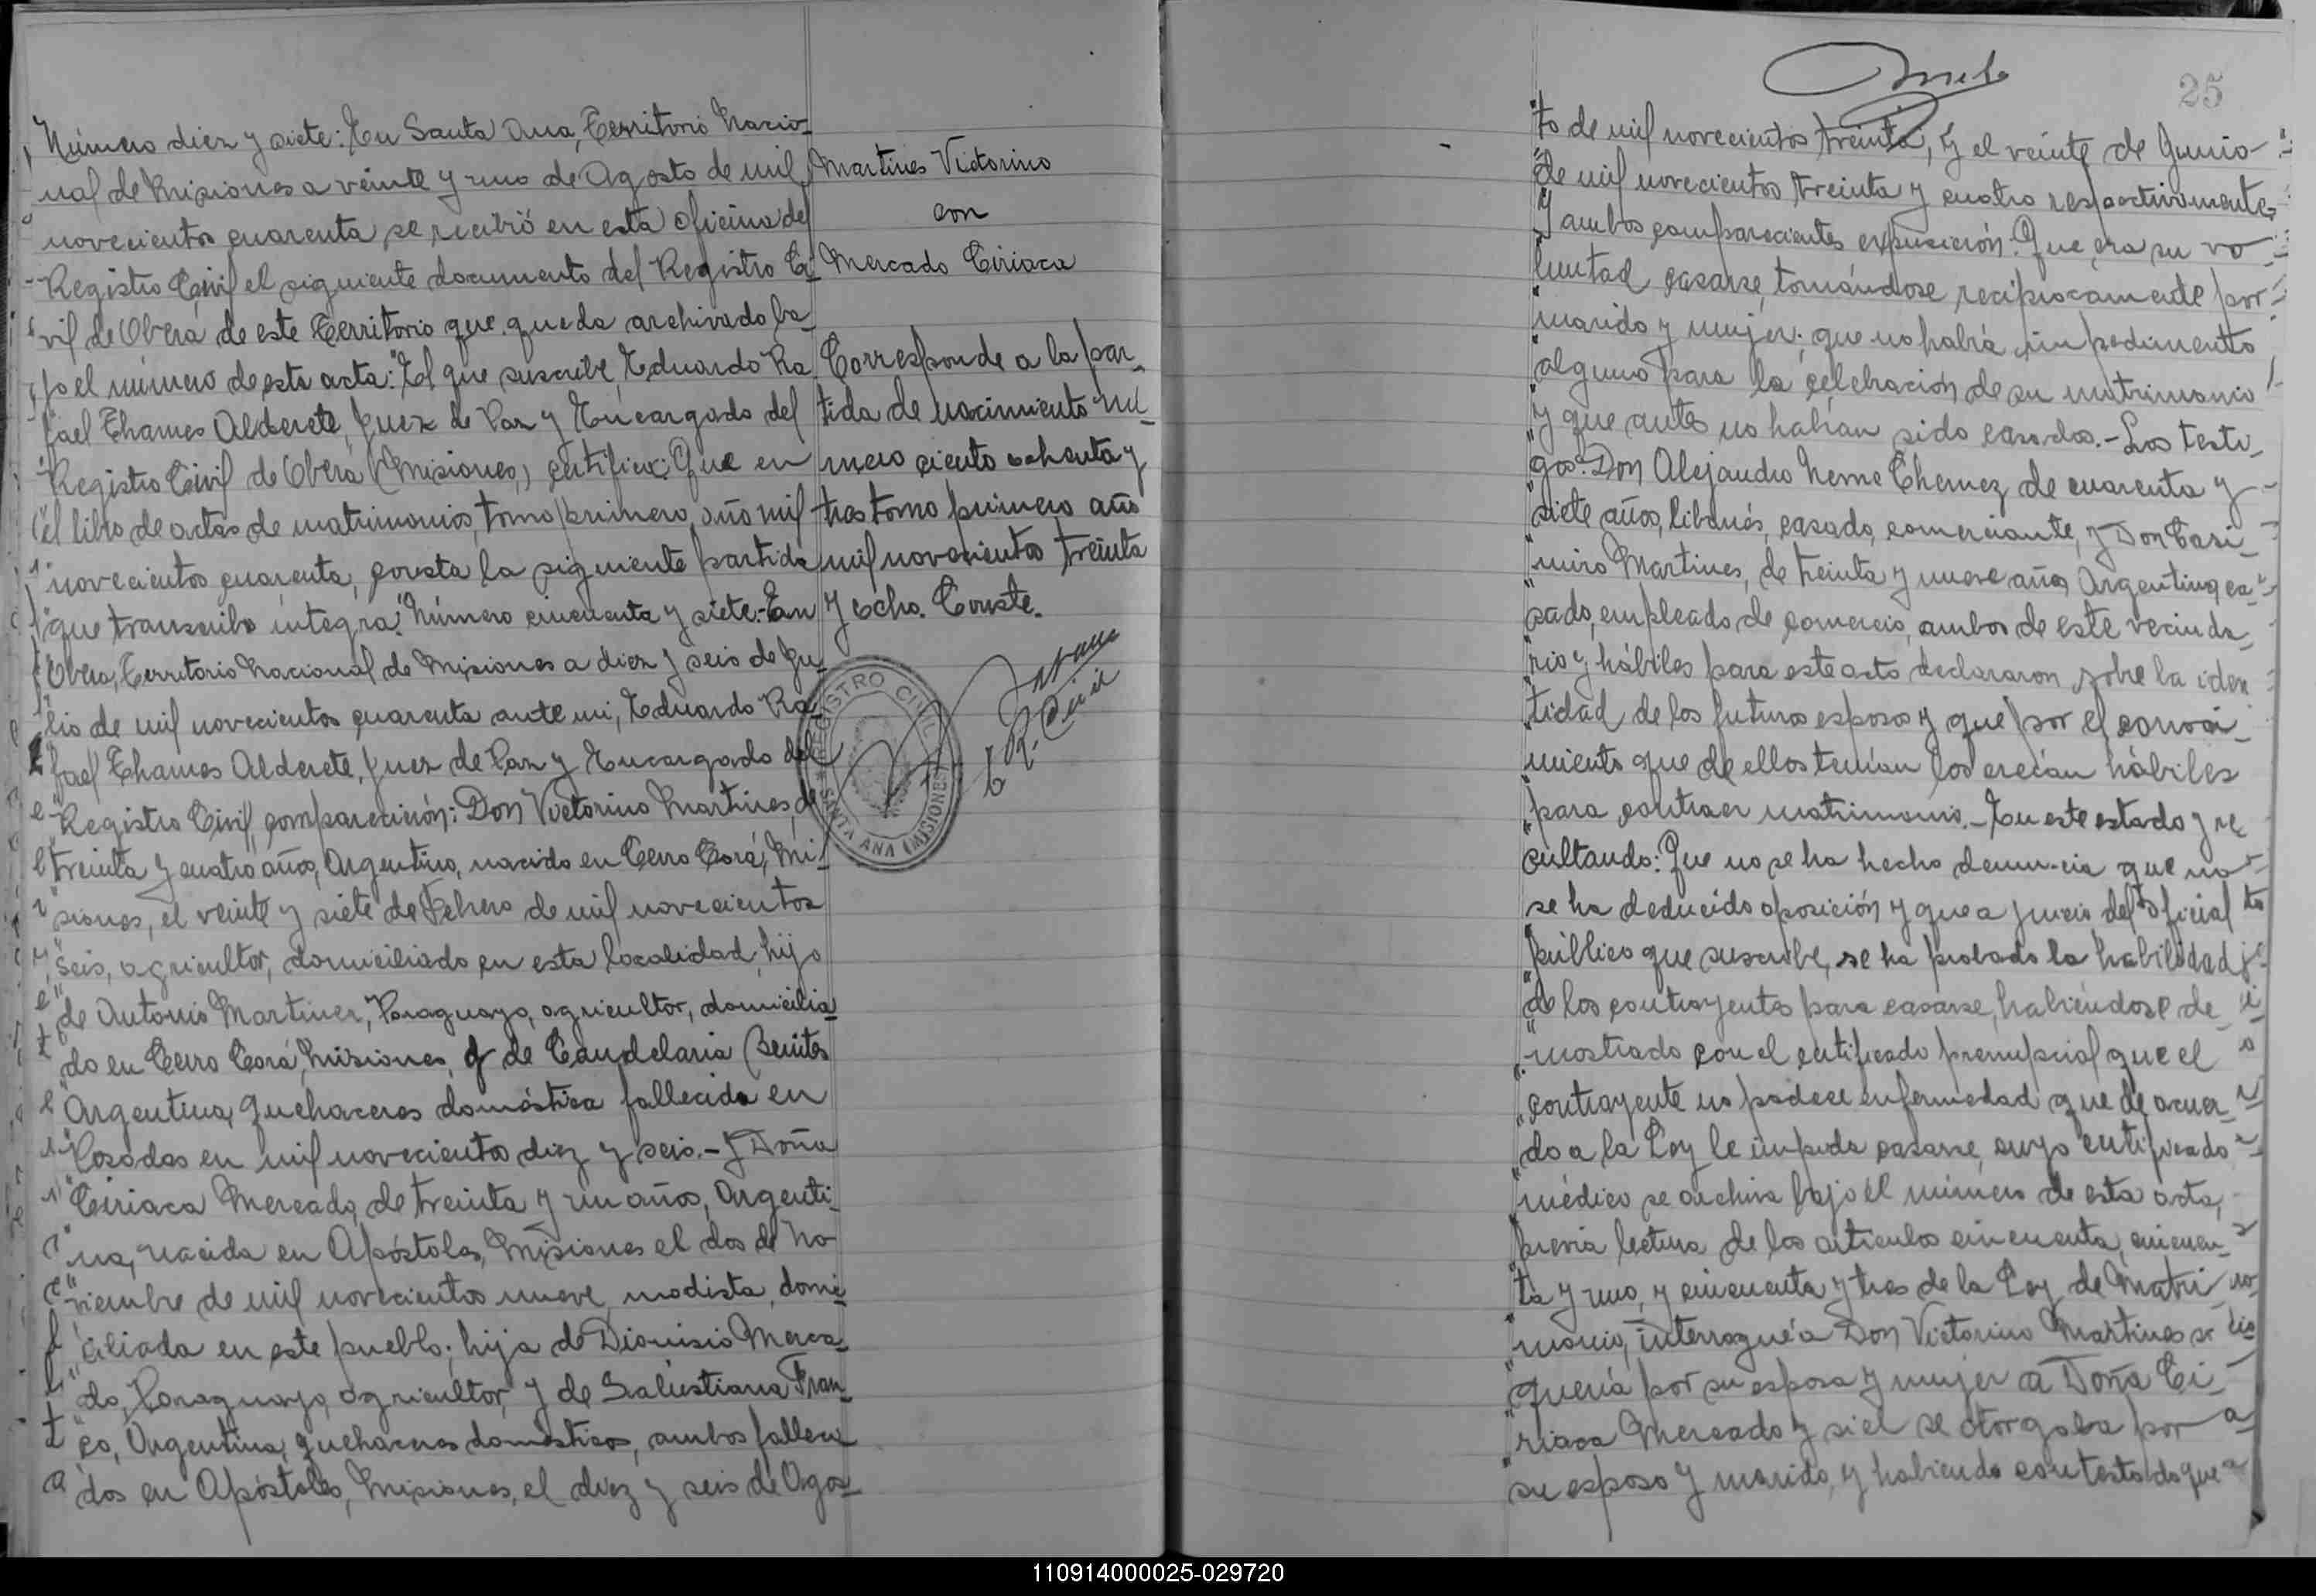 Número diez y siete: En Santa Ana, Territorio Nacio-
nal de Misiones a veinte y uno de Agosto de mil
novecientos cuarenta se recibió en esta oficina del
Registro Civil el siguiente documento del Registro Ci-
vil de Oberá de este Territorio que queda archivado ba-
jo el número de esta acta: "El que suscribe, Eduardo Ra
"fael Thames Alderete, Juez de Paz y Encargado del
"Registro Civil de Oberá (Misiones,) certifica: Que en
"el libro de actas de matrimonios, tomo primero, año mil
"novecientos cuarenta, consta la siguiente partida
"que transcribo íntegra: "Número cincuenta y siete.- En
"Oberá, Territorio Nacional de Misiones a diez y seis de Ju-
"lio de mil novecientos cuarenta ante mi, Eduardo Ra-
"fael Thames Alderete, Juez de Paz y Encargado del
"Registro Civil comparecieron: Don Victorino Martines, de
"treinta y cuatro años, Argentino, nacido en Cerro Corá, Mi-
"siones, el veinte y siete de Febrero de mil novecientos
"seis, agricultor, domiciliado en esta localidad, hijo
"de Antonio Martinez, Paraguayo, agricultor, domicilia-
"do en Cerro Corá, Misiones, y de Candelaria Benites
"Argentina, quehaceres doméstica fallecida en
"Posadas en mil novecientos diez y seis.- Y Doña
"Ciriaca Mercado, de treinta y un años, Argenti-
"na, nacida en Apóstoles, Misiones el dos de No-
"viembre de mil novecientos nueve, modista, domi-
"ciliada en este pueblo; hija de Dionisio Merca-
"do, Paraguayo, agricultor, y de Salustiana Fran-
"co, Argentina, quehaceres domésticos, ambos falleci-
"dos en Apóstoles, Misiones, el diez y seis de Agos-
Martines Victorino
con
Mercado Ciriaca
Corresponde a la par-
tida de nacimiento nú-
mero ciento ochenta y
tres tomo primero año
mil novecientos treinta
y ocho. Conste.
E. R. Civil
REGISTRO CIVIL
SANTA ANA (MISIONES)
25
"to de mil novecientos treinta, y el veinte de Junio
"de mil novecientos treinta y cuatro respectivamente,
"Y ambos comparecientes expusieron: Que era su vo-
"luntad casarse, tomándose recíprocamente por
"marido y mujer; que no había impedimento
"alguno para la celebración de su matrimonio
"y que antes no habían sido casados.- Los testi-
"gos: Don Alejandro Neme Chemez de cuarenta y
"siete años, libanés, casado, comerciante, y Don Casi-
"miro Martines, de treinta y nueve años, Argentino, ca-
"sado, empleado de comercio, ambos de este vecinda-
"rio y hábiles para este acto declararon sobre la iden
"tidad de los futuros esposos y que por el conoci-
"miento que de ellos tenían los creían hábiles
"para contraer matrimonio.- En este estado y re
"sultando: Que no se ha hecho denuncia que no
"se ha deducido oposición y que a juicio del oficial
"público que suscribe, se ha probado la habilidad
"de los contrayentes para casarse, habiéndose de-
"mostrado con el certificado prenupcial que el
"contrayente no padece enfermedad que de acuer-
"do a la Ley le impida casarse, cuyo certificado
"médico se archiva bajo el número de esta acta,
"previa lectura de los artículos cincuenta, cincuen-
"ta y uno, y cincuenta y tres de la Ley de Matri-
"monio, interrogué a Don Victorino Martines si
"quería por su esposa y mujer a Doña Ci-
"riaca Mercado y si el se otorgaba por
"su esposo y marido, y habiendo contestado que
110914000025-029720